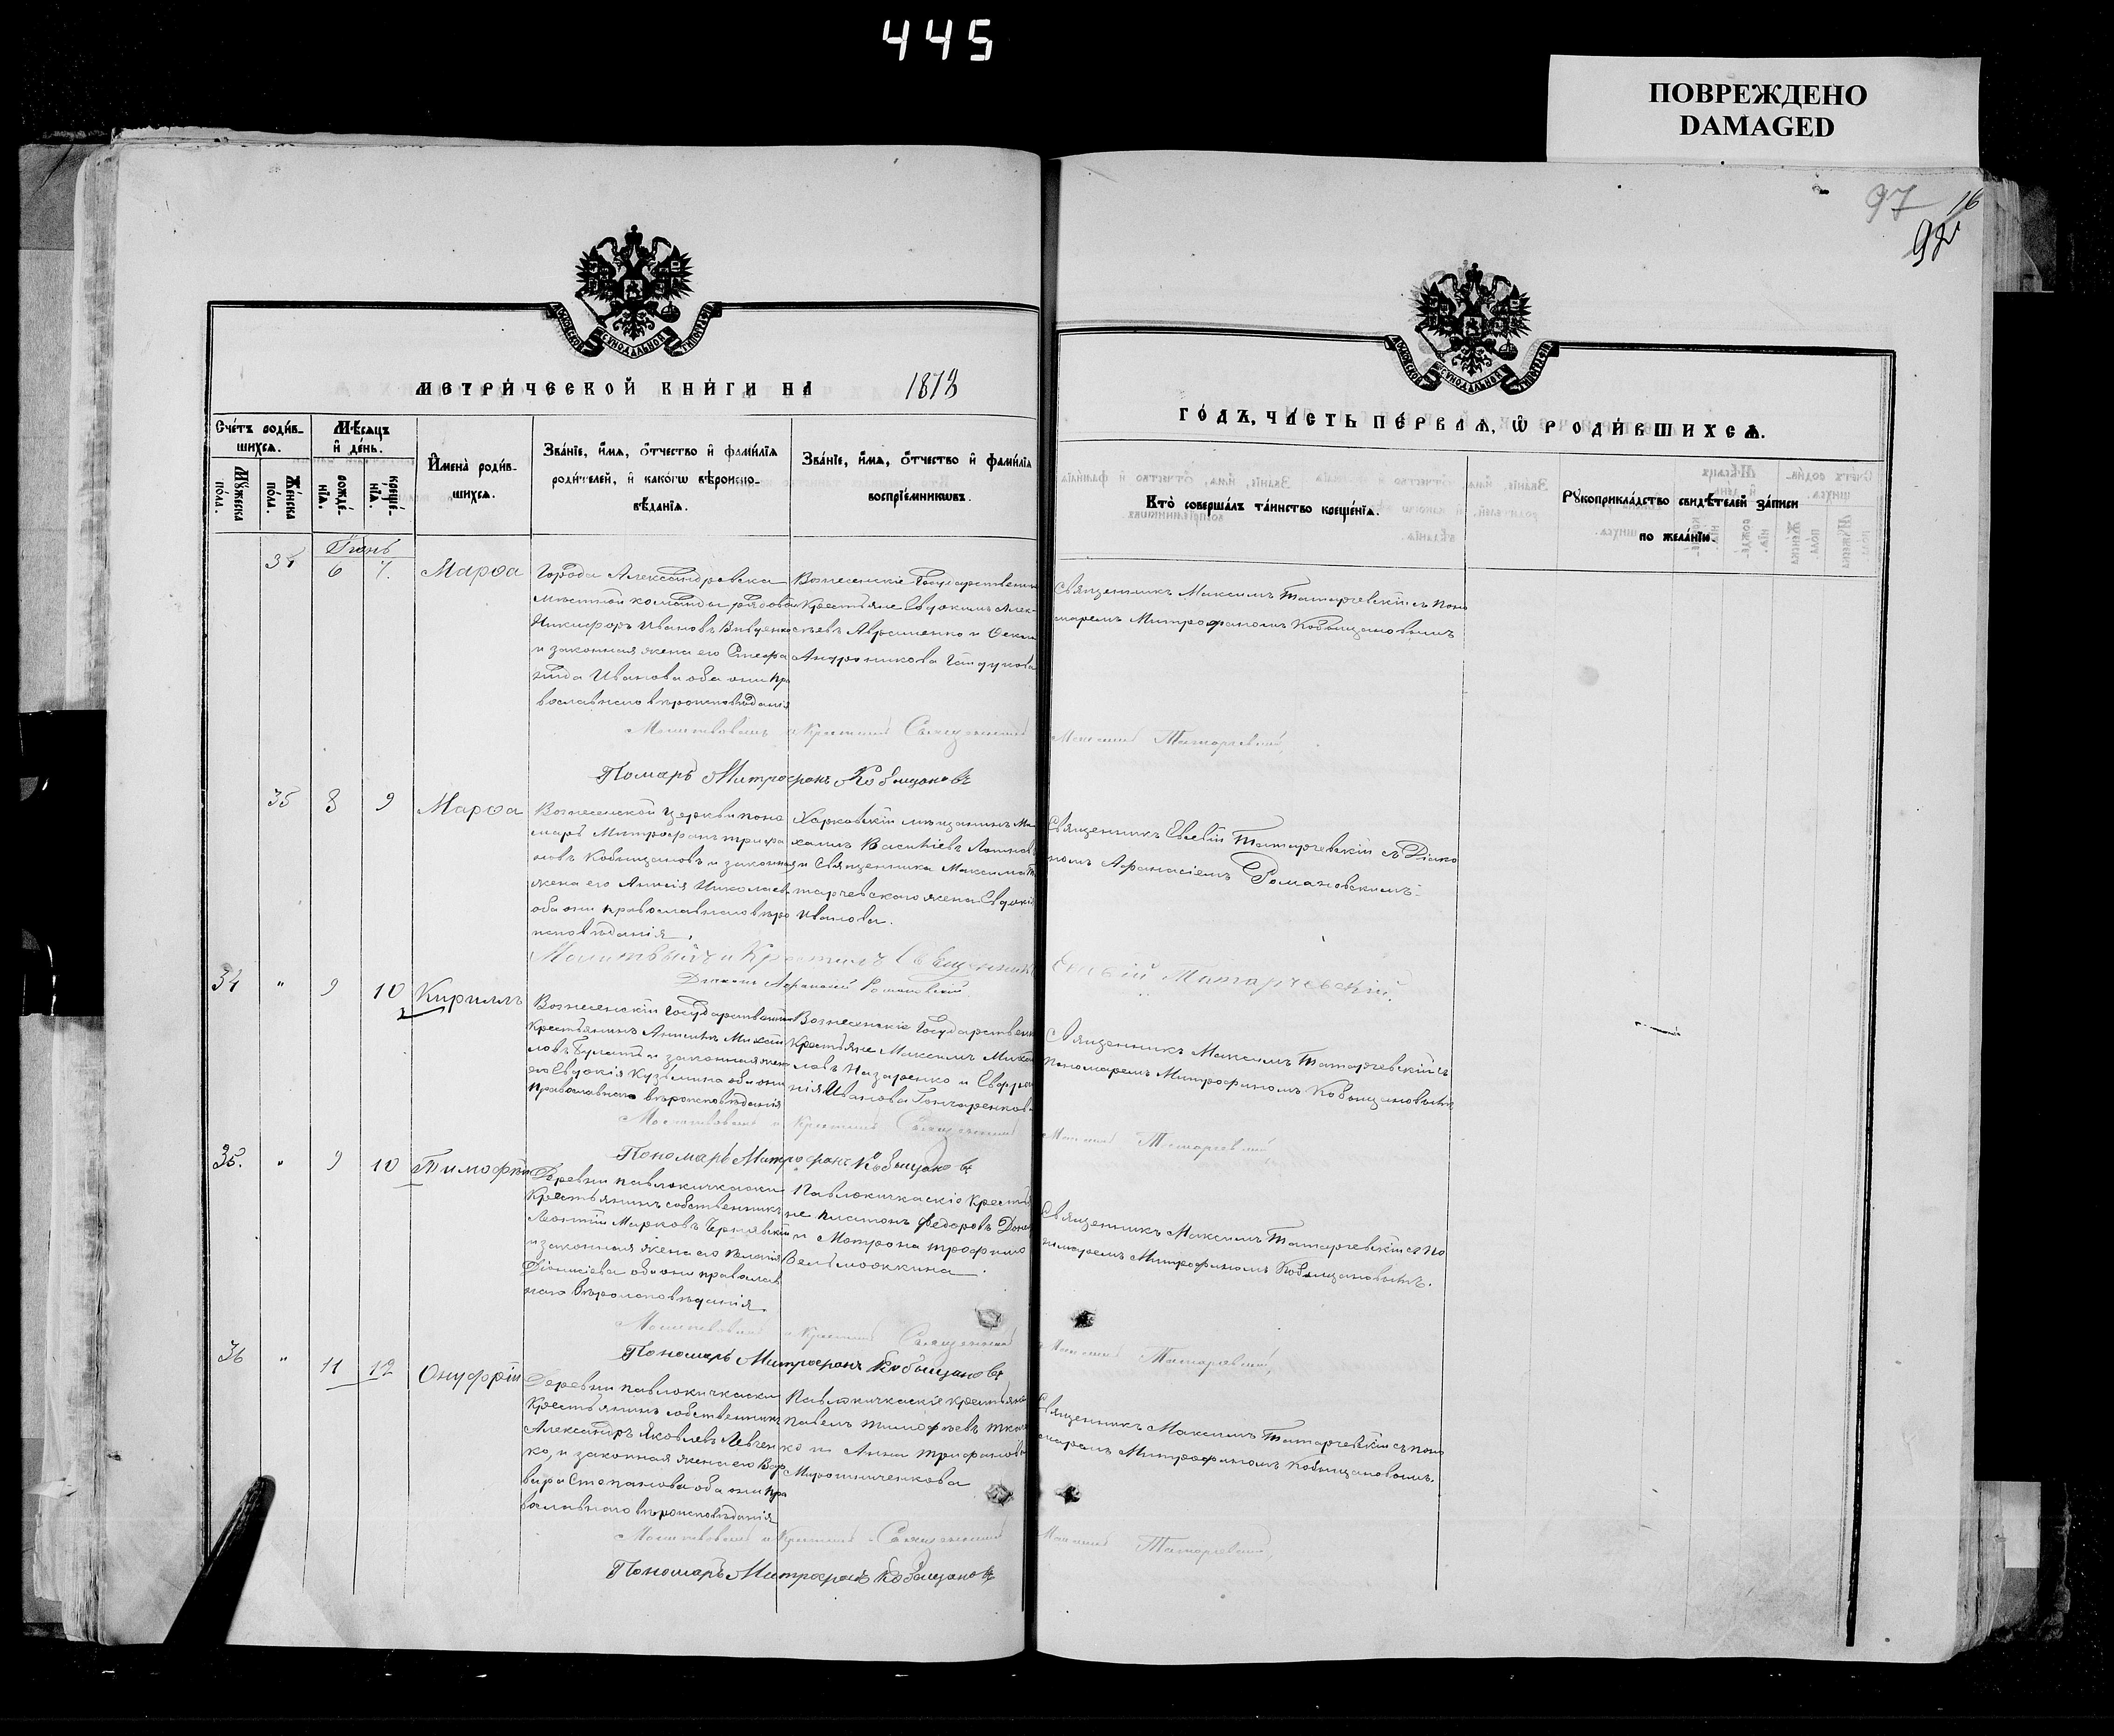 445
ПОВРЕЖДЕНО
DAMAGED
97 16
МЕТРИ́ЧЕСКОЙ КНИ́ГИ НА 1873
ГО́ДЪ, ЧА́СТЬ ПЕ́РВАѦ, Ѡ҆ РОДИ́ВШИХСѦ.
Сче́тъ роди́в-
шихсѧ.
Мꙋ́жеска по́ла.
Же́нска по́ла.
Мѣ́сѧцъ
и҆ де́нь.
рожде́-
нїѧ.
креще́-
нїѧ.
И҆мена̀ роди́в-
шихсѧ.
Зва́нїе, и҆́мѧ, ѻ҆́тчество и҆ фами́лїѧ
роди́телей, и҆ како́гѡ вѣроиспо-
вѣ́данїѧ.
Зва́нїе, и҆́мѧ, ѻ҆́тчество и҆ фами́лїѧ
воспрїе́мникѡвъ.
Кто̀ соверша́лъ та́инство креще́нїѧ.
Рꙋкоприкла́дство свидѣ́телей за́писи
по жела́нїю.
Іюнь
34 6 7. Марѳа
Города Александровска
мѣстной команды рядовой
Никифоръ Ивановъ
и законная жена его Стефа
нида Иванова оба они пра
вославнаго вѣроисповѣданія
Вознесенскіе Государственные
Крестьяне Евдокимъ Алек-
сѣевъ Авраменко и
Андроникова Гайдукова
Священникъ Максимъ Татарчевскій съ поно
маремъ Митрофаномъ Кобыщановымъ
Молитвовалъ и Крестилъ Священникъ Максимъ Татарчевскій
Помарь Митрофанъ Кобыщановъ
35 8 9 Марѳа
Вознесенской церкви поно
марь Митрофанъ Трифо
новъ Кобыщановъ и законная
жена его Анисія Николаев
оба они православнаго вѣро
исповѣданія.
Харковскій мѣщанинъ Ми
хаилъ Василіевъ
и Священника Максима Та
тарчевскаго жена Евдокія
Иванова.
Священникъ Евсевій Татарчевскій съ Діяко
номъ Афанасіемъ Романовскимъ.
Молитвовалъ и Крестилъ Священникъ Евсевій Татарчевскій.
Діяконъ Афанасій Романовскій
34 " 9 10 Кириллъ
Вознесенскій Государственный
Крестьянинъ Михай
ловъ и законная жена
его Евдокія Кузьмина оба они
Православнаго вѣроисповѣданія
Вознесенскіе Государственные
Крестьяне Максимъ Михай
ловъ Назаренко и Евфро
нія Иванова Гончаренкова
Священникъ Максимъ Татарчевскій съ
пономаремъ Митрофаномъ Кобыщановымъ
Молитвовалъ и Крестилъ Священникъ Максимъ Татарчевскій
Пономарь Митрофанъ Кобыщановъ
35. " 9 10 Тимофѣй
Деревни Павлокичкаски
Крестьянинъ собственникъ
Леонтій Марковъ Чернявскій
и законная жена его Пелагія
Діонисіева оба они православ
наго вѣроисповѣданія
Павлокичкаскіе Крестья
не Платонъ Федоровъ
и Мотрона Трофимо
Вельможкина.
Священникъ Максимъ Татарчевскій съ По
номаремъ Митрофаномъ Кобыщановымъ.
Молитвовалъ и Крестилъ Священникъ Максимъ Татарчевскій,
Пономарь Митрофанъ Кобыщановъ
36 " 11 12 Онуфрій
Деревни Павлокичкаски
Крестьянинъ собственникъ
Александръ Яковлевъ Левчен
ко, и законная жена его Вар
вара Степанова оба они пра
вославнаго вѣроисповѣданія
Павлокичкаскіе крестьяне
Павелъ Тимофѣевъ Ткачен
ко и Анна Трифонова
Мирошниченкова
Священникъ Максимъ Татарчевскій съ поно
маремъ Митрофаномъ Кобыщановымъ.
Молитвовалъ и Крестилъ Священникъ Максимъ Татарчевскій,
Пономарь Митрофанъ Кобыщановъ